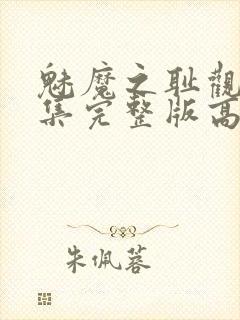 魅魔之耻觀
集完整版高
朱佩蓉